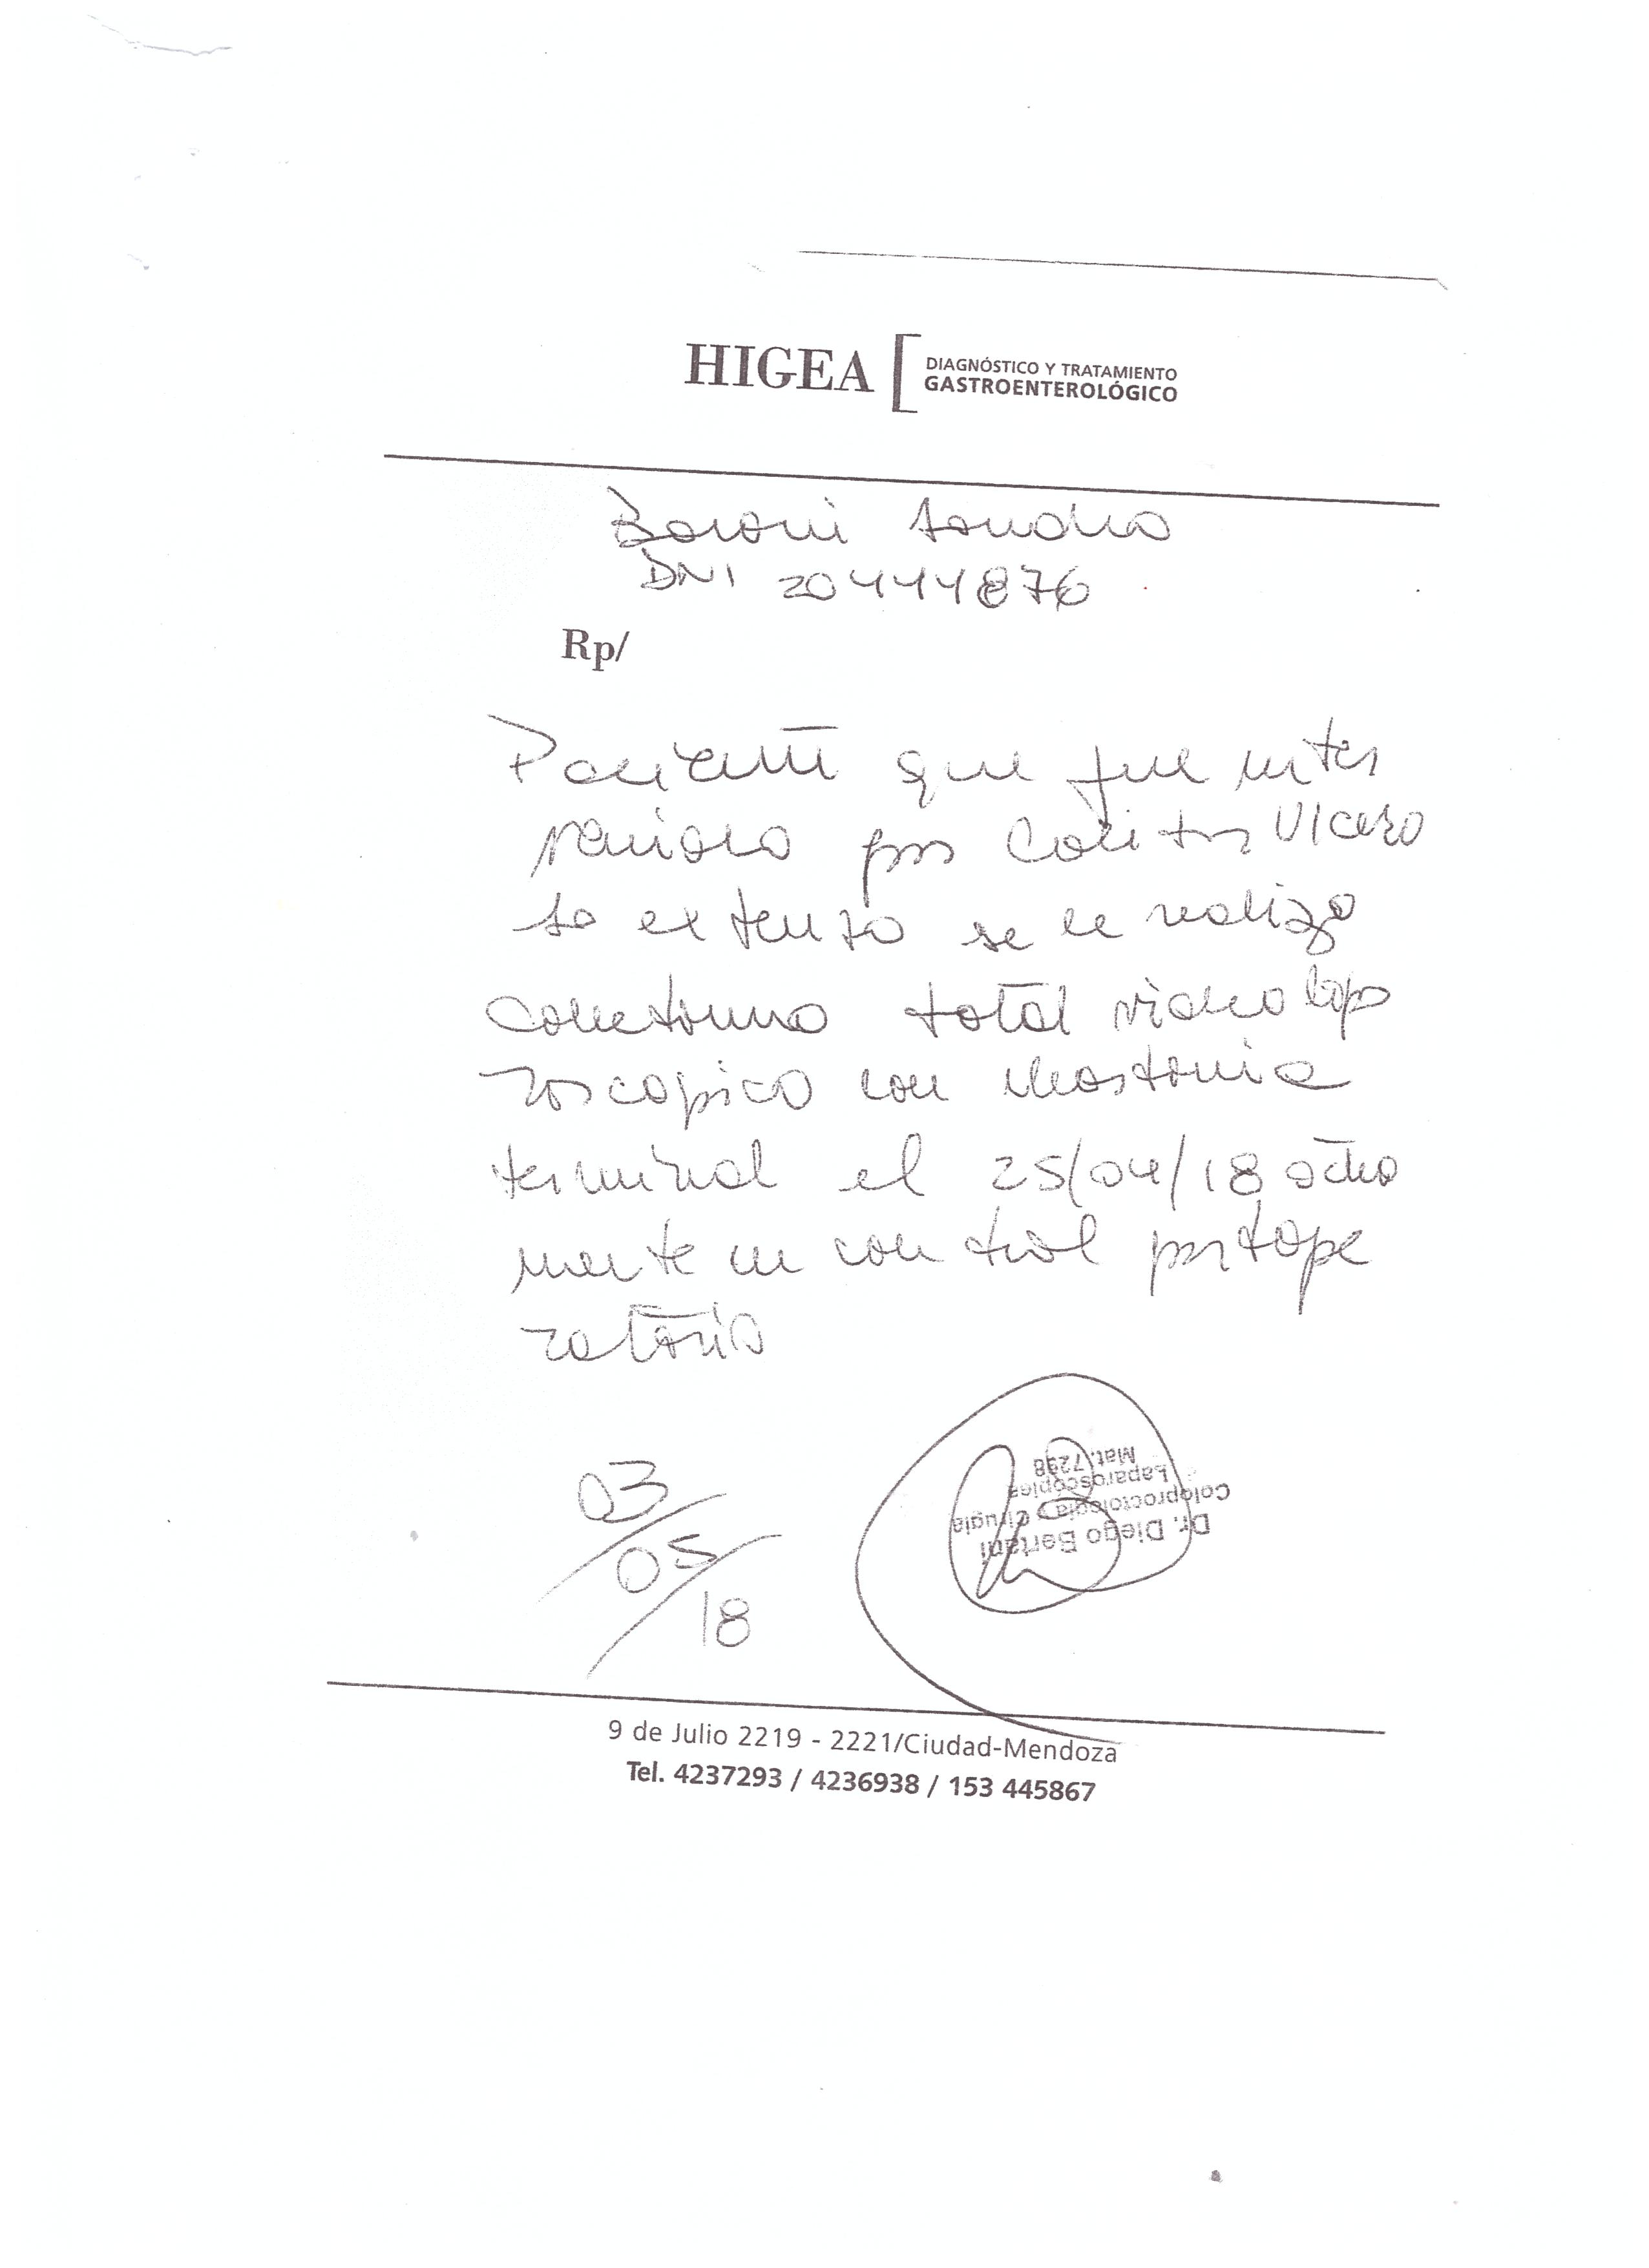 HIGEA
DIAGNÓSTICO Y TRATAMIENTO
GASTROENTEROLÓGICO
Baroni Sandra
DNI 20444876
Rp/
Paciente que fue inter
venida por Colitis Ulcero
sa extensa se le realizo
colectomia total videolapa
roscopica con ileostomia
terminal el 25/04/18 actual
mente en control postope
ratorio
03/05/18
Dr. Diego Bertani
Coloproctología Cirugía
Laparoscópica
Mat. 7298
9 de Julio 2219 - 2221/Ciudad-Mendoza
Tel. 4237293 / 4236938 / 153 445867